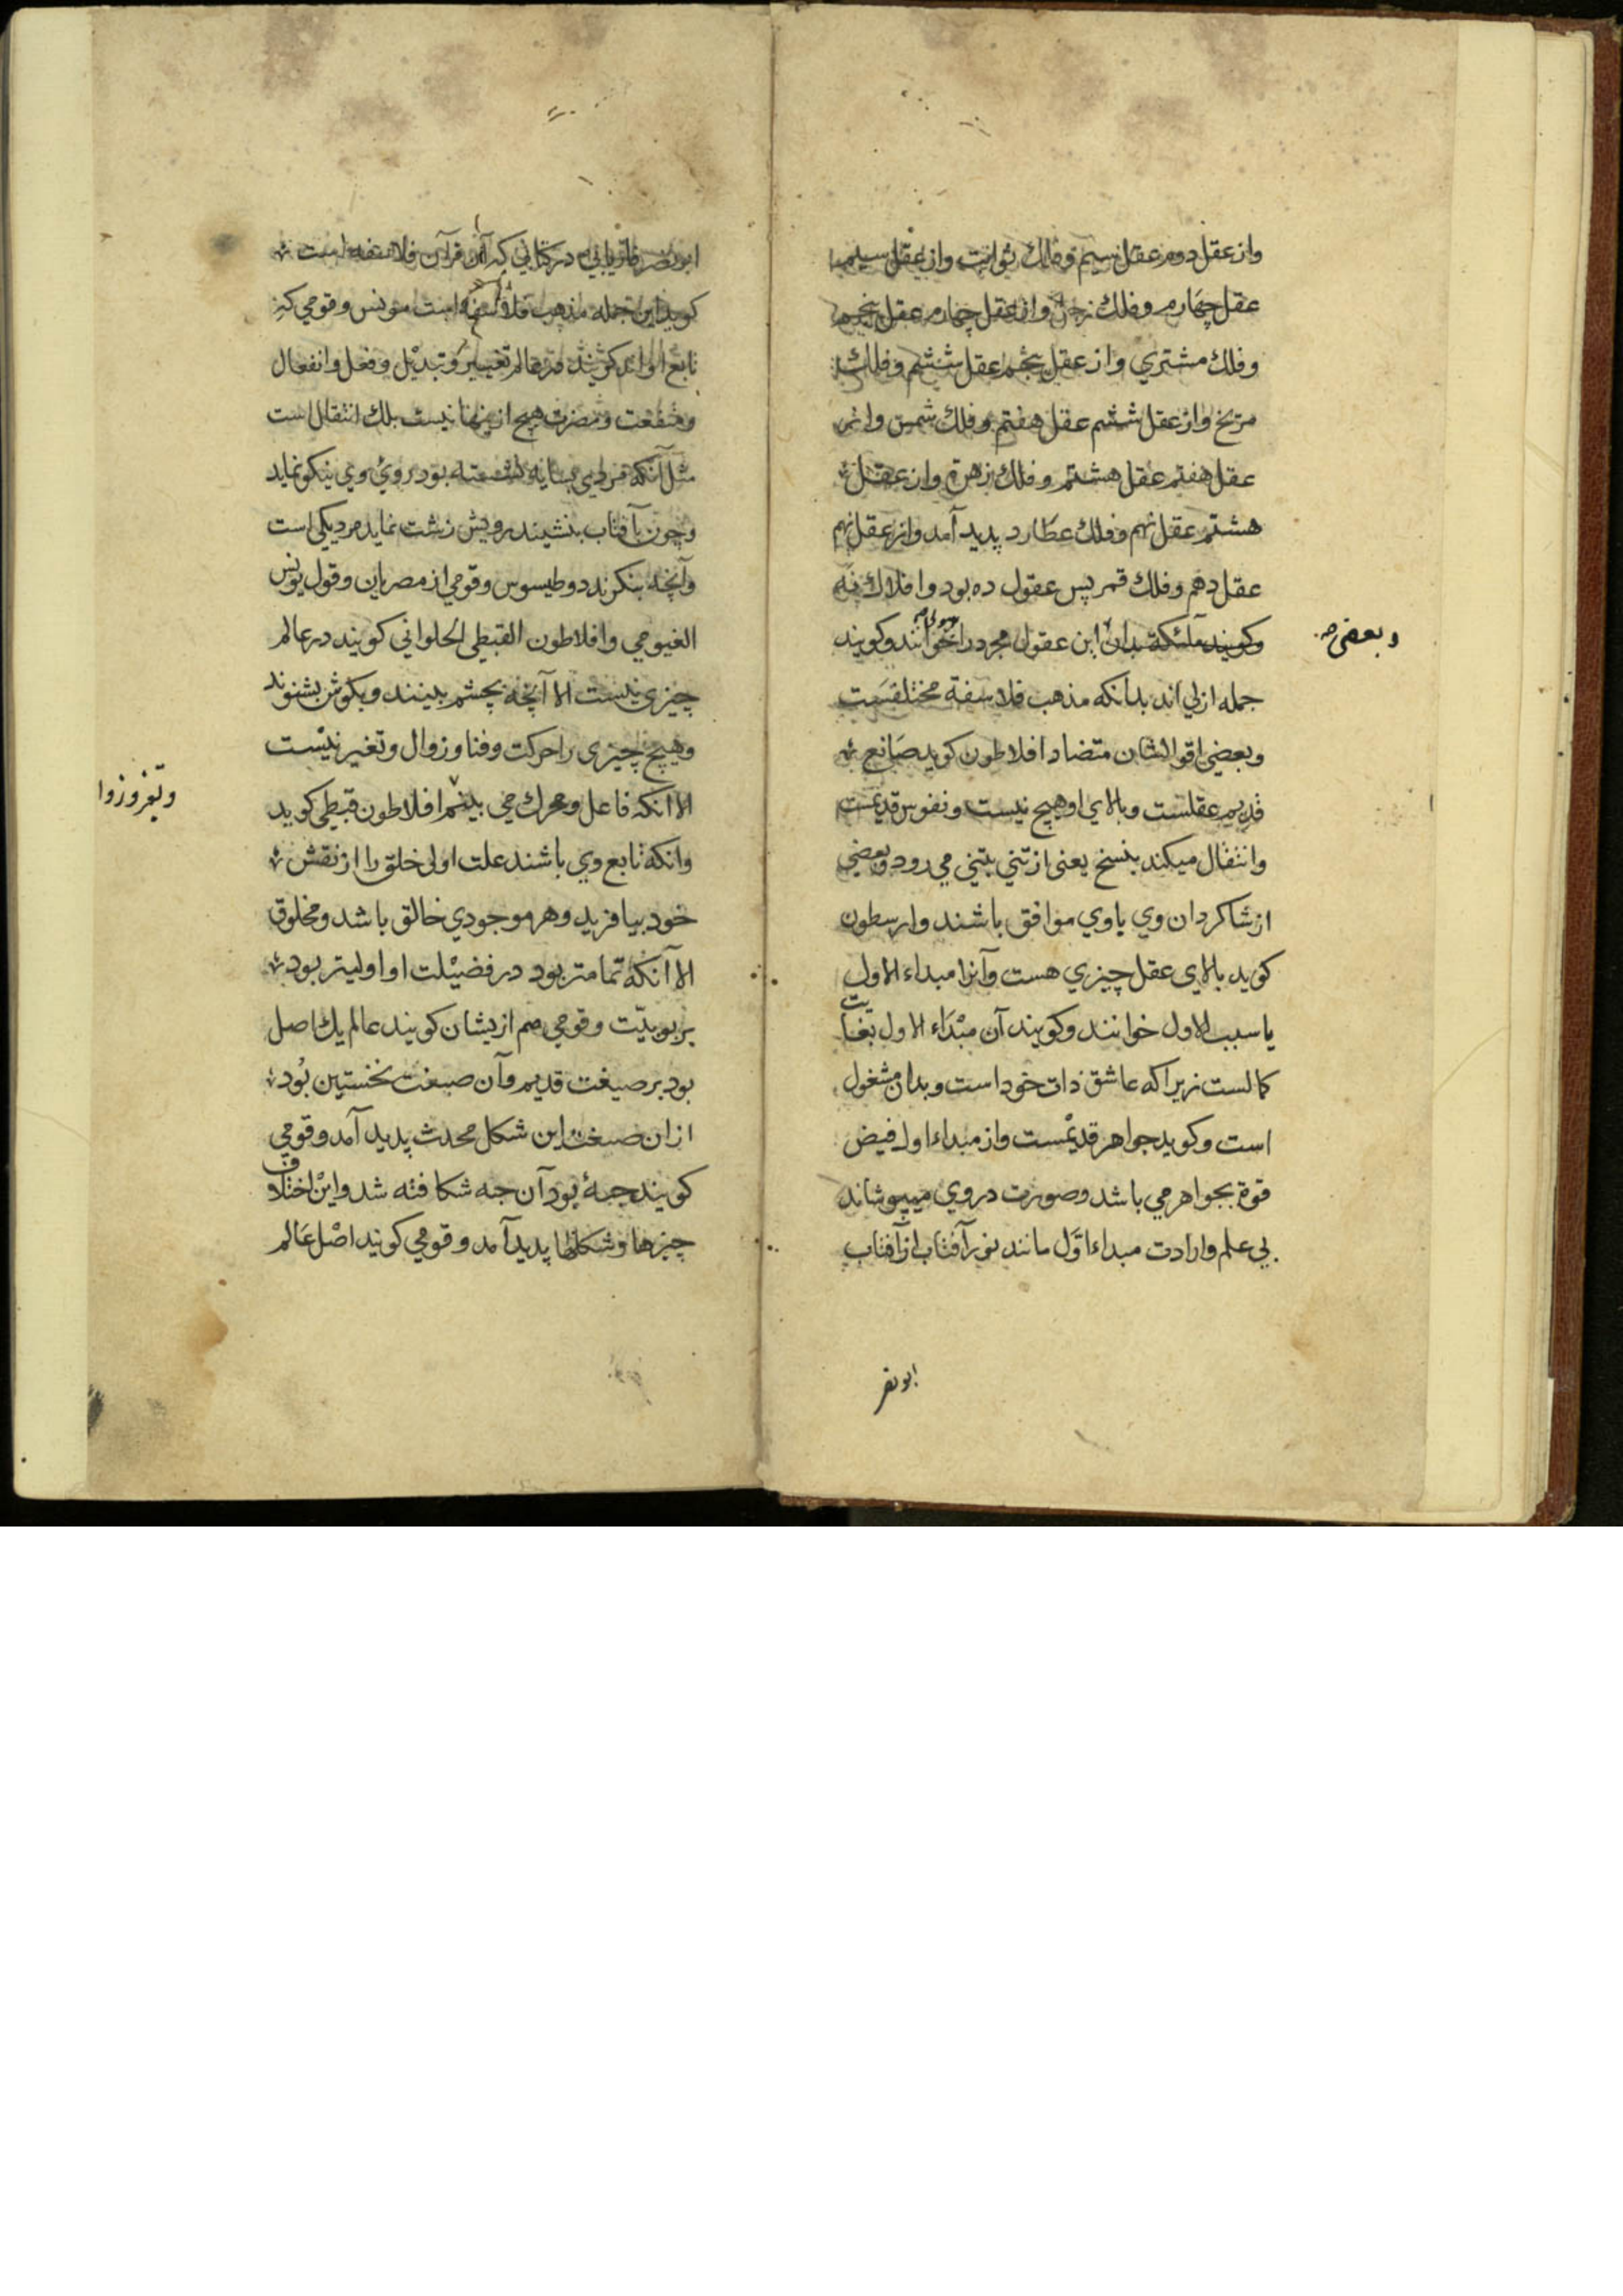 واز عقل دوم عقل سیم و فلك ثوابت واز عقل سیم
عقل چهارم و فلك زحل واز عقل چهارم عقل پنجم
و فلك مشتري واز عقل پنجم عقل ششم و فلك
مریخ واز عقل ششم عقل هفتم و فلك شمس واز
عقل هفتم عقل هشتم و فلك زهرة واز عقل
هشتم عقل نهم و فلك عطارد پدید آمد واز عقل نهم
عقل دهم و فلك قمر پس عقول ده بود وافلاك نه
وکویند ملئکة بدان این عقول مجرد را خوانند وکویند
وبعضی
جمله ازلي اند بدانکه مذهب فلاسفة مختلفست
وبعضي اقوالشان متضاد افلاطون کوید صانع
قدیم عقلست وبالاي او هیچ نیست ونفوس قدیمست
وانتقال میکند بنسخ یعنی از تني بتني مي رود وبعضي
از شاکردان وي باوي موافق باشند وارسطون
کوید بالاي عقل چیزي هست وآنرا مبداء الاول
یا سبب الاول خوانند وکویند آن مبداء الاول بغایت
کمالست زیرا که عاشق ذات خود است وبدان مشغول
است وکوید جواهر قدیمست واز مبداء اول فیض
قوة بجواهر مي باشد وصورت در وي میپوشاند
بي علم وارادت مبداء اول مانند نور آفتاب از آفتاب
ابو نصر
ابو نصر فاریابي در کتابي که آن قرآن فلاسفه است
کوید این جمله مذهب فلاسفه است مونس وقومي که
تابع او اند کویند در عالم تغییر و تبدیل وفعل وانفعال
ومنفعت ومضرت هیچ از اینها نیست بلك انتقال است
مثل آنکه مردي بسایه نشسته بود روي وي نیکو نماید
وچون بآفتاب بنشیند رویش زشت نماید مرد یکي است
وآنچه بنکرند دوطیسوس وقومي از مصریان وقول یونس
الغیومي وافلاطون القبطي الحلواني کویند در عالم
چیزي نیست الا آنچه بچشم بینند وبکوش بشنوند
وهیچ چیزي را حرکت وفنا وزوال وتغیر نیست
الا آنکه فاعل ومحرك مي بینم افلاطون قبطي کوید
وانکه تابع وي باشند علت اولی خلق را از نقش
خود بیافرید وهر موجودي خالق باشد ومخلوق
الا آنکه تمامتر بود در فضیلت او اولیتر بود
بربوبیت وقومي هم ازیشان کویند عالم یك اصل
بود بر صیغت قدیم وآن صیغت نخستین بود
ازان صیغت این شکل محدث پدید آمد وقومي
کویند جبۀ بود آن جبه شکافته شد واین اختلاف
چیزها وشکلها پدید آمد وقومي کویند اصل عالم